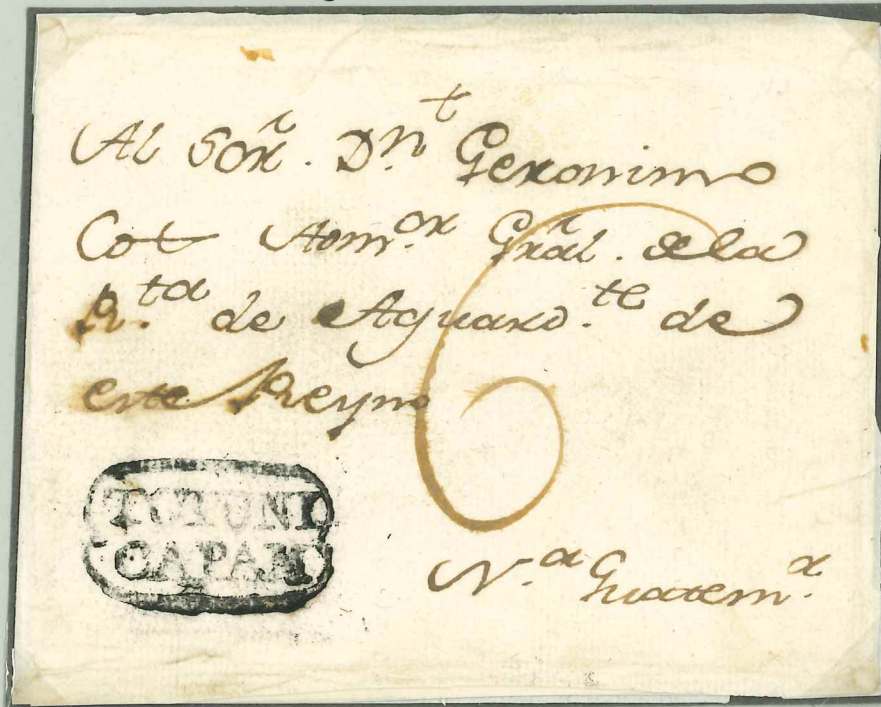 Al Sor. Dn. Geronimo
Cot Aomor Gral. de la
Rta de Aguard.te de
este Reyno
6
TOTONI
CAPAN
N.a Guatem.a